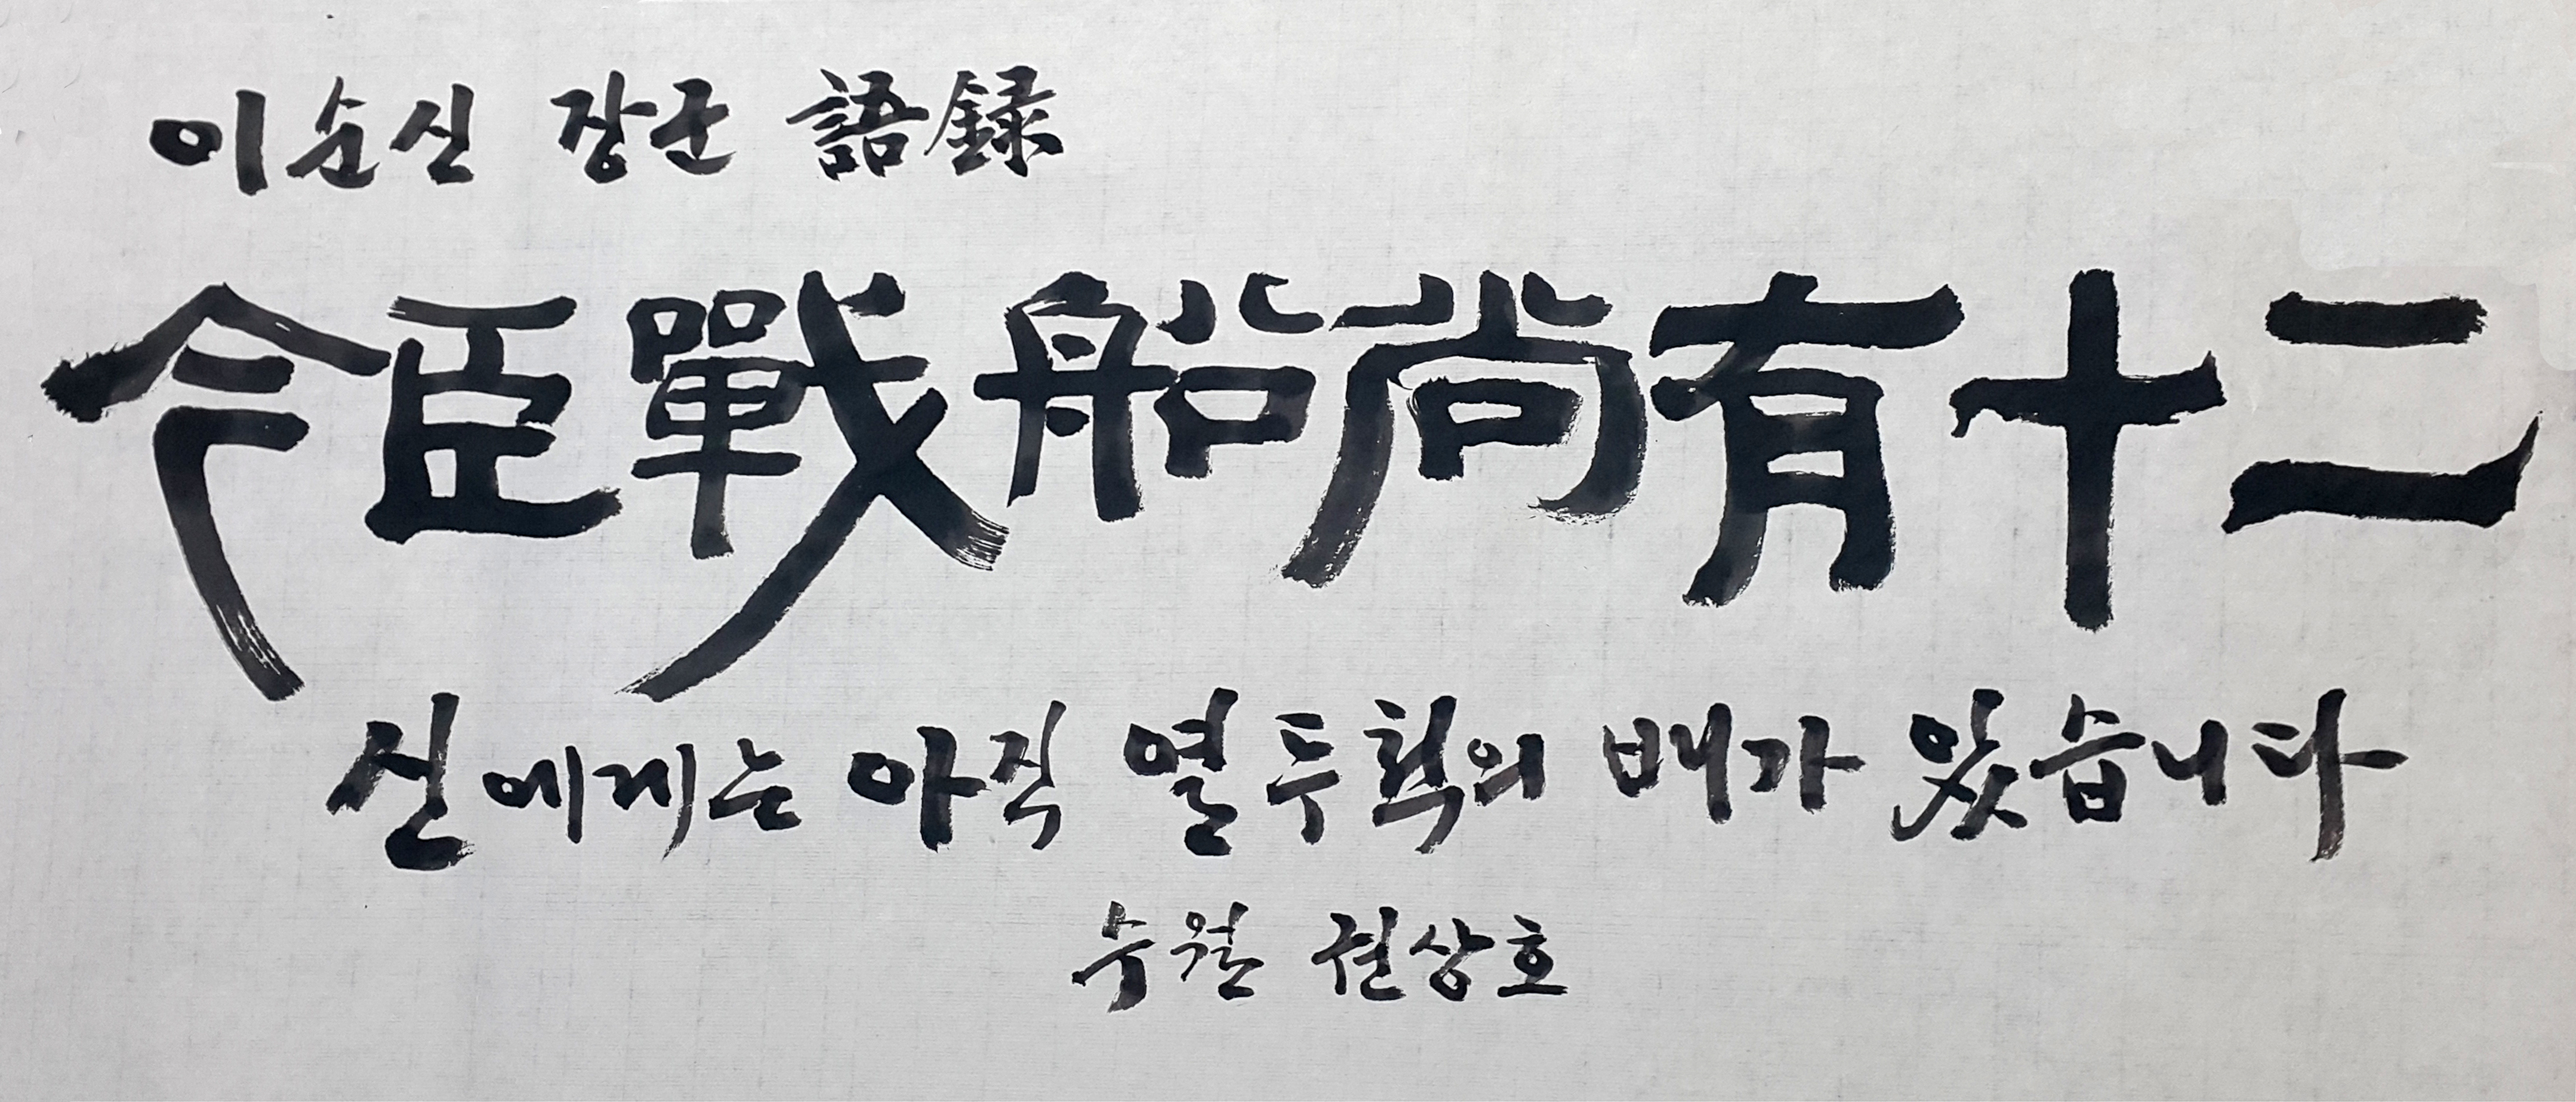 이순신 장군 語録
今臣戰船尚有十二
신에게는 아직 열두척의 배가 있습니다
수월 권상호